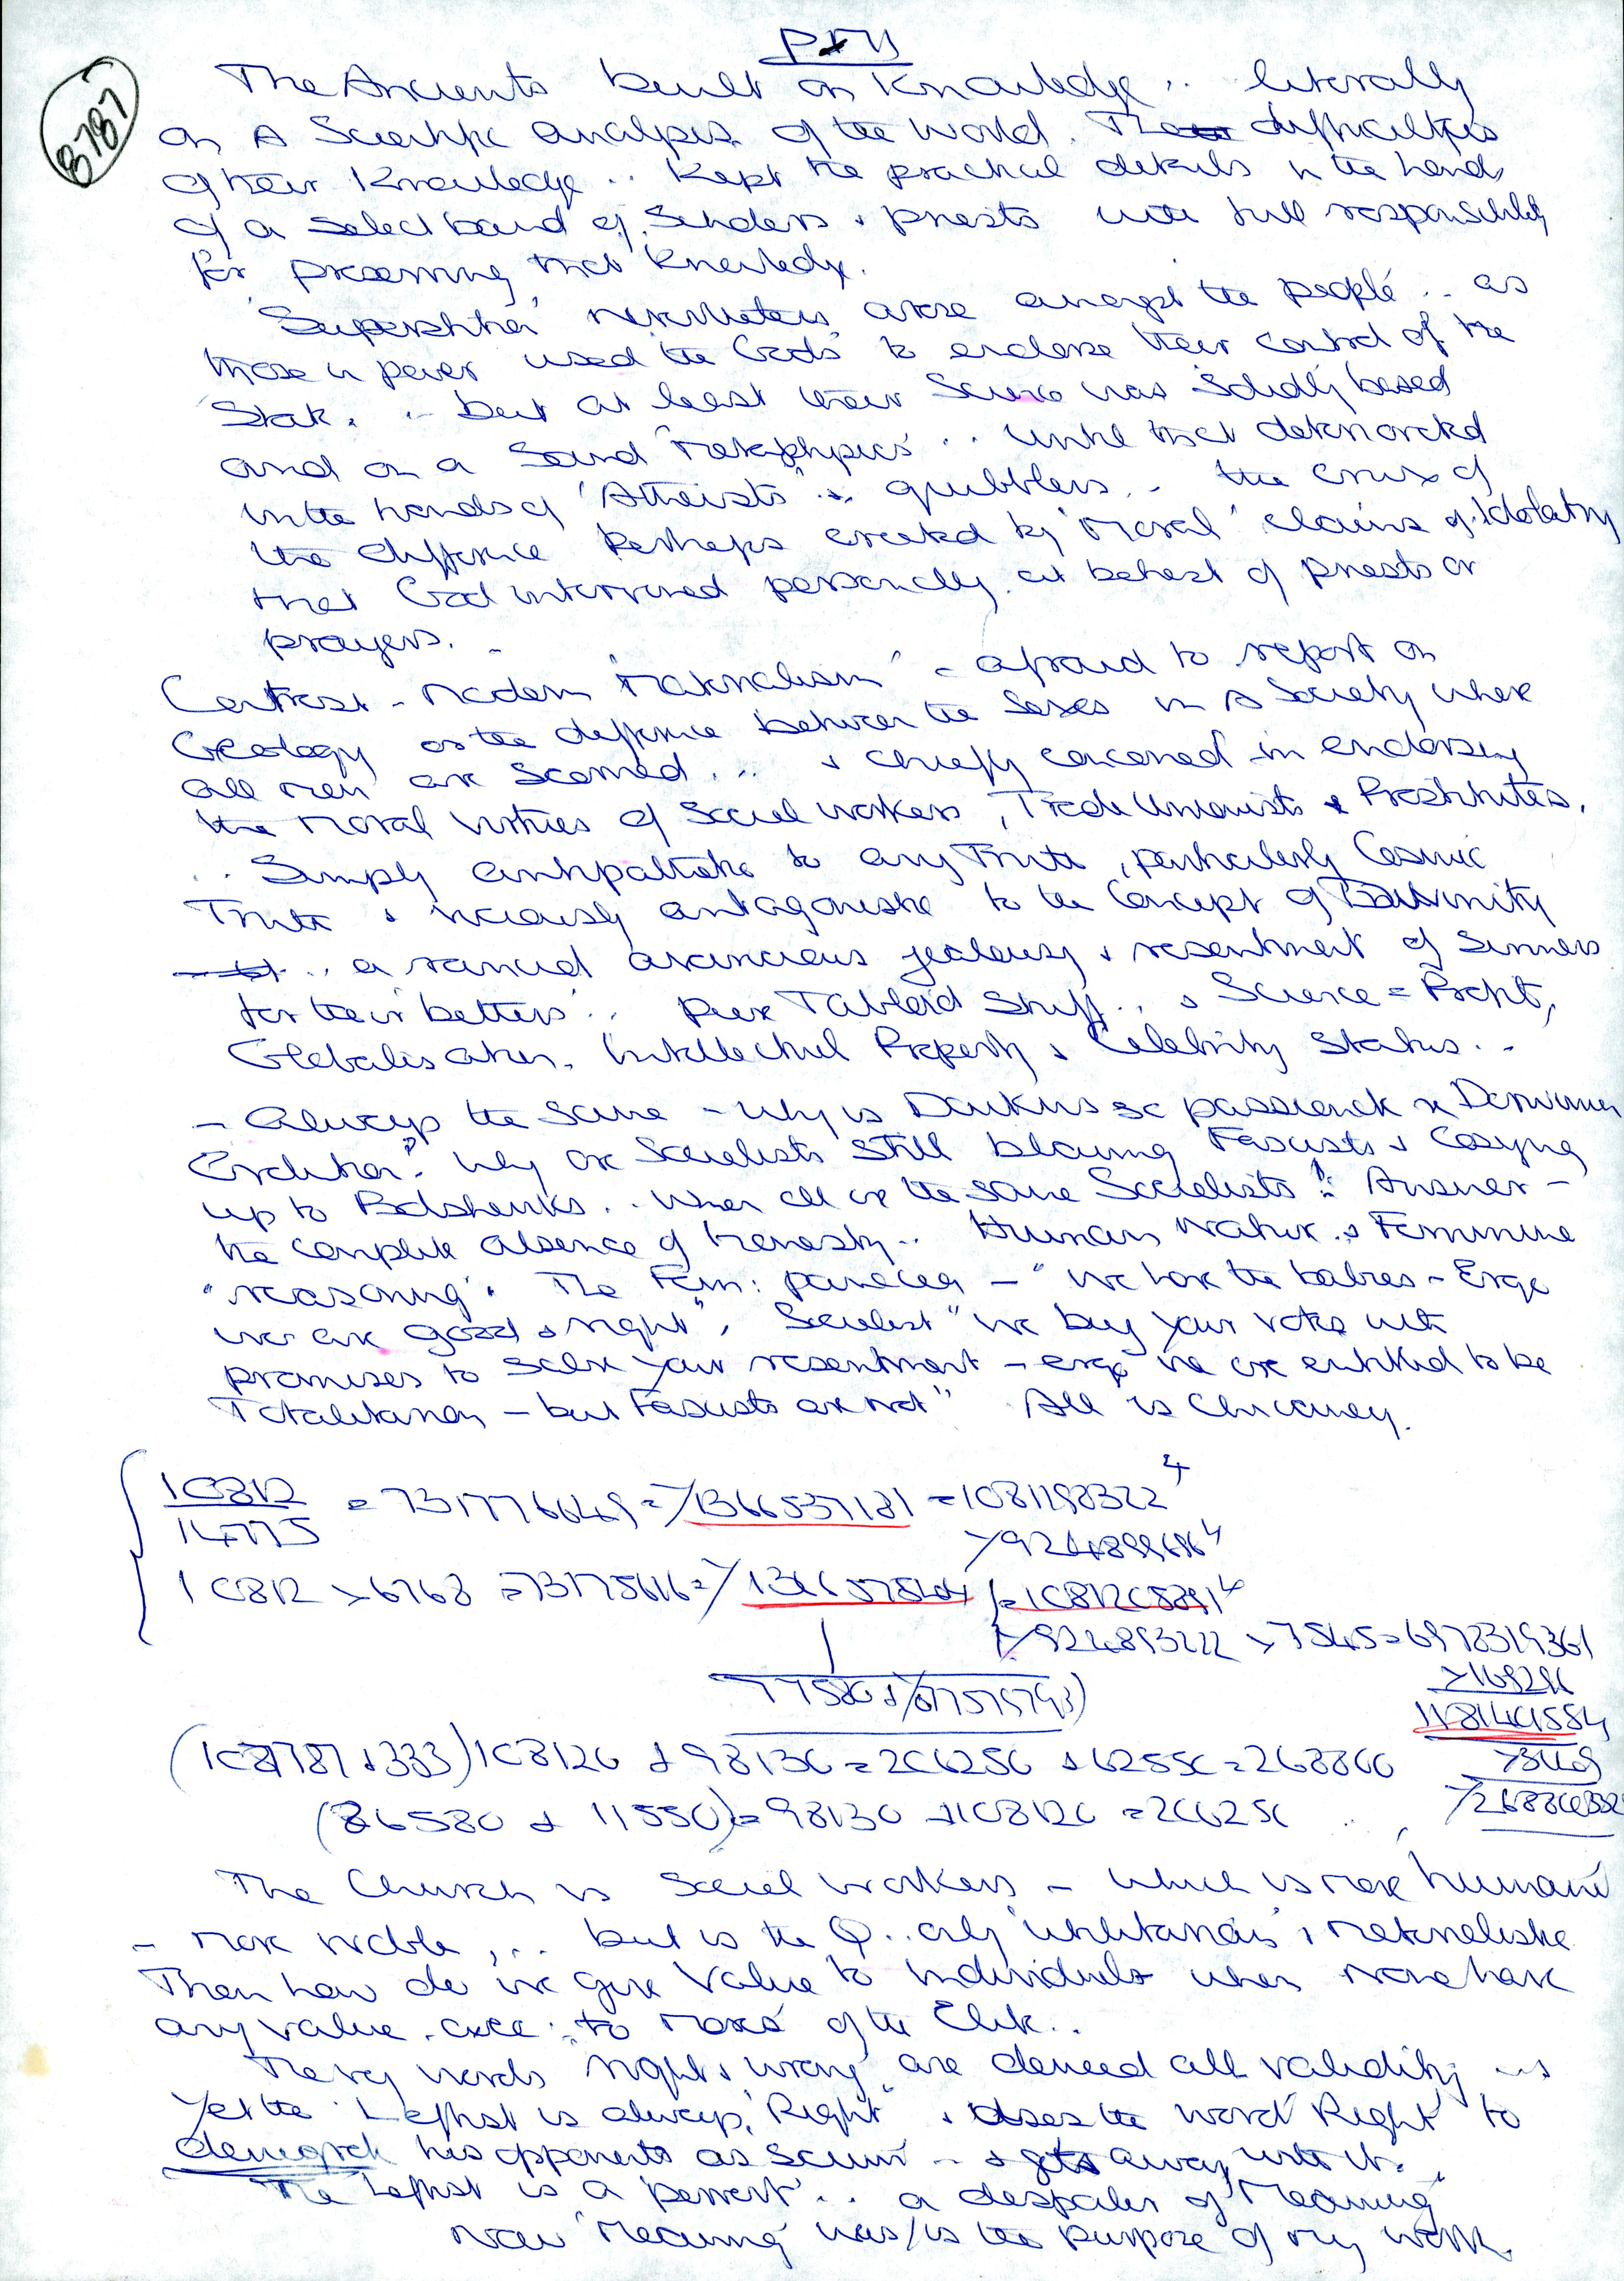 8787
The Ancients built on Knowledge .. literally
on A Scientific analysis of the World. The difficulties
of their Knowledge .. kept the practical details in the hands
of a select band of Scholars & priests with full responsibility
for preserving that Knowledge.
'Superstition' arose amongst the people .. as
those in power used the Gods to endorse their control of the
State. .. but at least their Science was Solidly based
and on a Sound Metaphysics .. until that deteriorated
in the hands of 'Atheists' quibblers .. the crux of
the difference perhaps created by 'Moral' claims of Idolatry
that God intervened personally at behest of priests or
prayers. -
Contrast - Modern 'Materialism' - afraid to report on
Geology or the difference between the Sexes in A Society where
all men are scorned ... & chiefly concerned in endorsing
the moral virtues of Social workers, Trade Unionists & Prostitutes.
.. Simply antipathetic to any Truth, particularly Cosmic
Truth & viciously antagonistic to the Concept of Divinity
.. a rancid avaricious jealousy & resentment of Sinners
for their 'betters' .. pure Tabloid Stuff .. & Science = Profit,
Globalisation, Intellectual Property & Celebrity Status ..
- Always the same - why is Dawkins so passionate on Darwinian
Evolution? Why are Socialists Still blaming Fascists & Cosying
up to Bolsheviks .. When all are the same Socialists? Answer -
the complete absence of honesty .. Human Nature & Feminine
"reasoning". The Fem: panacea - "We have the babies - Ergo
we are good & right", Socialist "We buy your votes with
promises to salve your resentment - ergo we are entitled to be
Totalitarian - but Fascists are not" All is Chicanery.
10812
14775
10812 × 6768
(107787 + 333) 108120 + 98130 = 206250 + 62550 = 268800
(86580 + 11550) = 98130 + 108120 = 206250
The Church is Social Workers - which is more 'humane'
- more noble, .. but is the Q .. only utilitarian & materialistic
Then how do we give Value to Individuals when none have
any value to of the Elite ..
The very words 'right & wrong' are denied all validity ..
Yet the Leftist is always 'Right' & uses the word 'Right' to
denigrate his opponents as scum - & gets away with it.
The Leftist is a 'pervert' .. a despoiler of 'Meaning'
Now 'Meaning' was/is the purpose of my work.